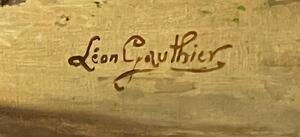 Léon Gauthier